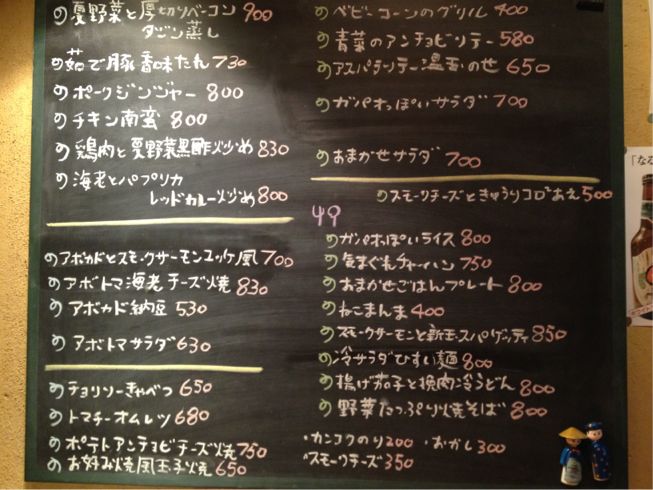 の夏野菜と厚切りベーコン 900
タジン蒸し
の茹で豚香味たれ 730
のポークジンジャー 800
のチキン南蛮 800
の鶏肉と夏野菜黒酢炒め 830
の海老とパプリカ
レッドカレー炒め 800
のアボカドとスモークサーモンユッケ風 700
のアボトマ海老チーズ焼 830
のアボカド納豆 530
のアボトマサラダ 630
のチョリソーきゃべつ 650
のトマチーオムレツ 680
のポテトアンチョビチーズ焼 750
のお好み焼風玉子焼 650
のベビーコーンのグリル 400
の青菜のアンチョビソテー 580
のアスパラソテー温玉のせ 650
のガパオっぽいサラダ 700
のおまかせサラダ 700
のスモークチーズときゅうりコロコロあえ 500
49
のガパオっぽいライス 800
の気まぐれチャーハン 750
のおまかせごはんプレート 800
のねこまんま 400
のスモークサーモンと新玉スパゲッティ 850
の冷サラダひすい麺 800
の揚げ茄子と挽肉冷うどん 800
の野菜たっぷり焼そば 800
・カンコクのり 200 ・おかし 300
・スモークチーズ 350
「なる